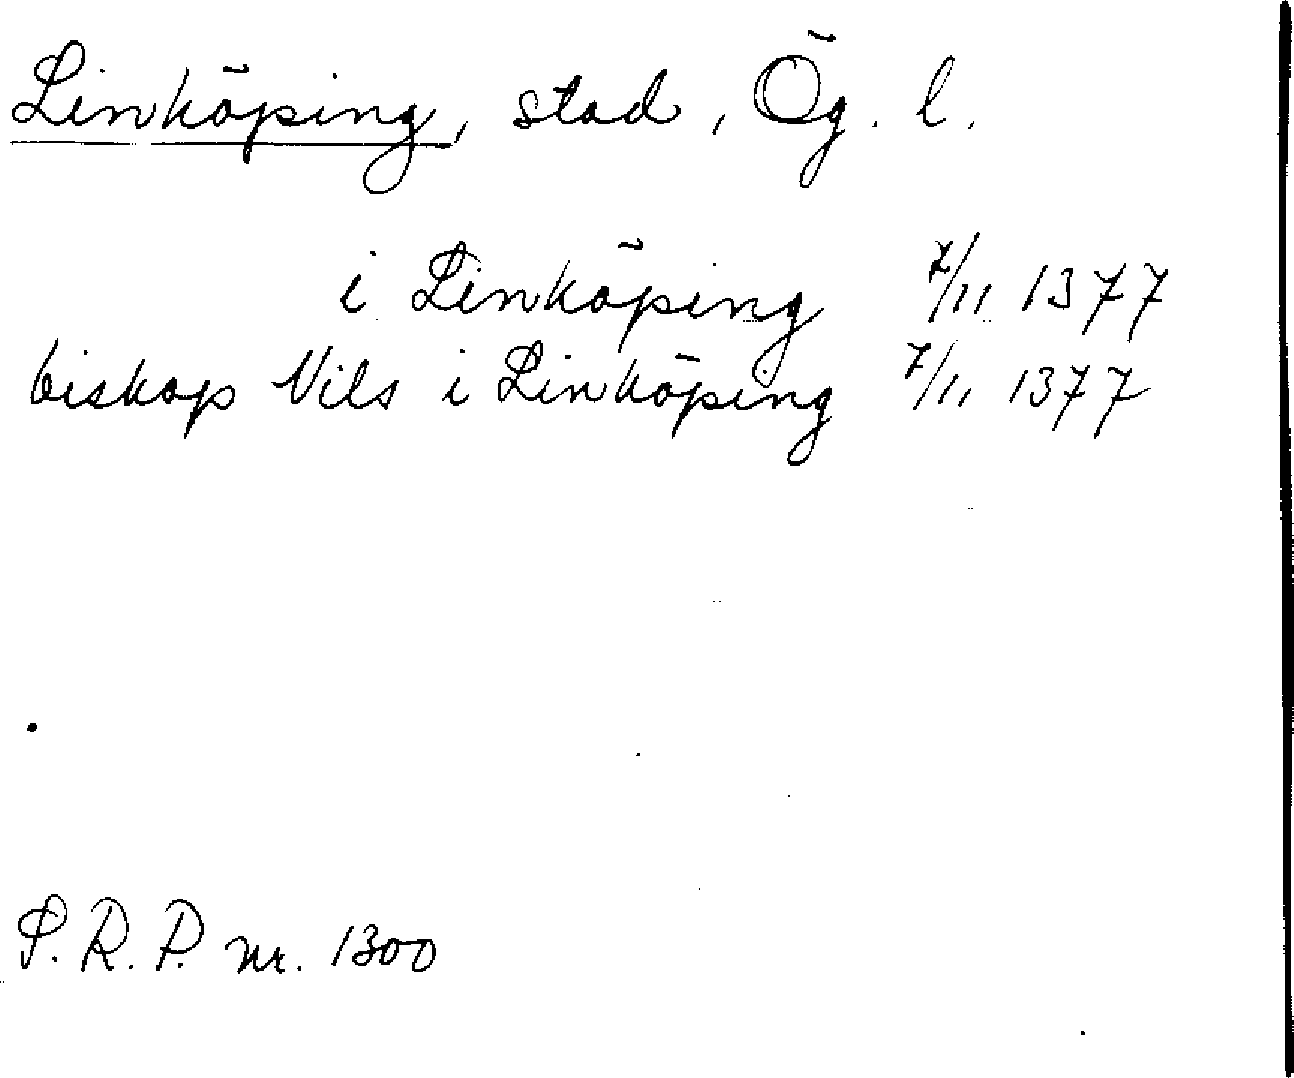 Linköping, stad, Ög. l.
i Linköping 7/11 1377
biskop Nils i Linköping 7/11 1377
S.R.P. nr. 1300